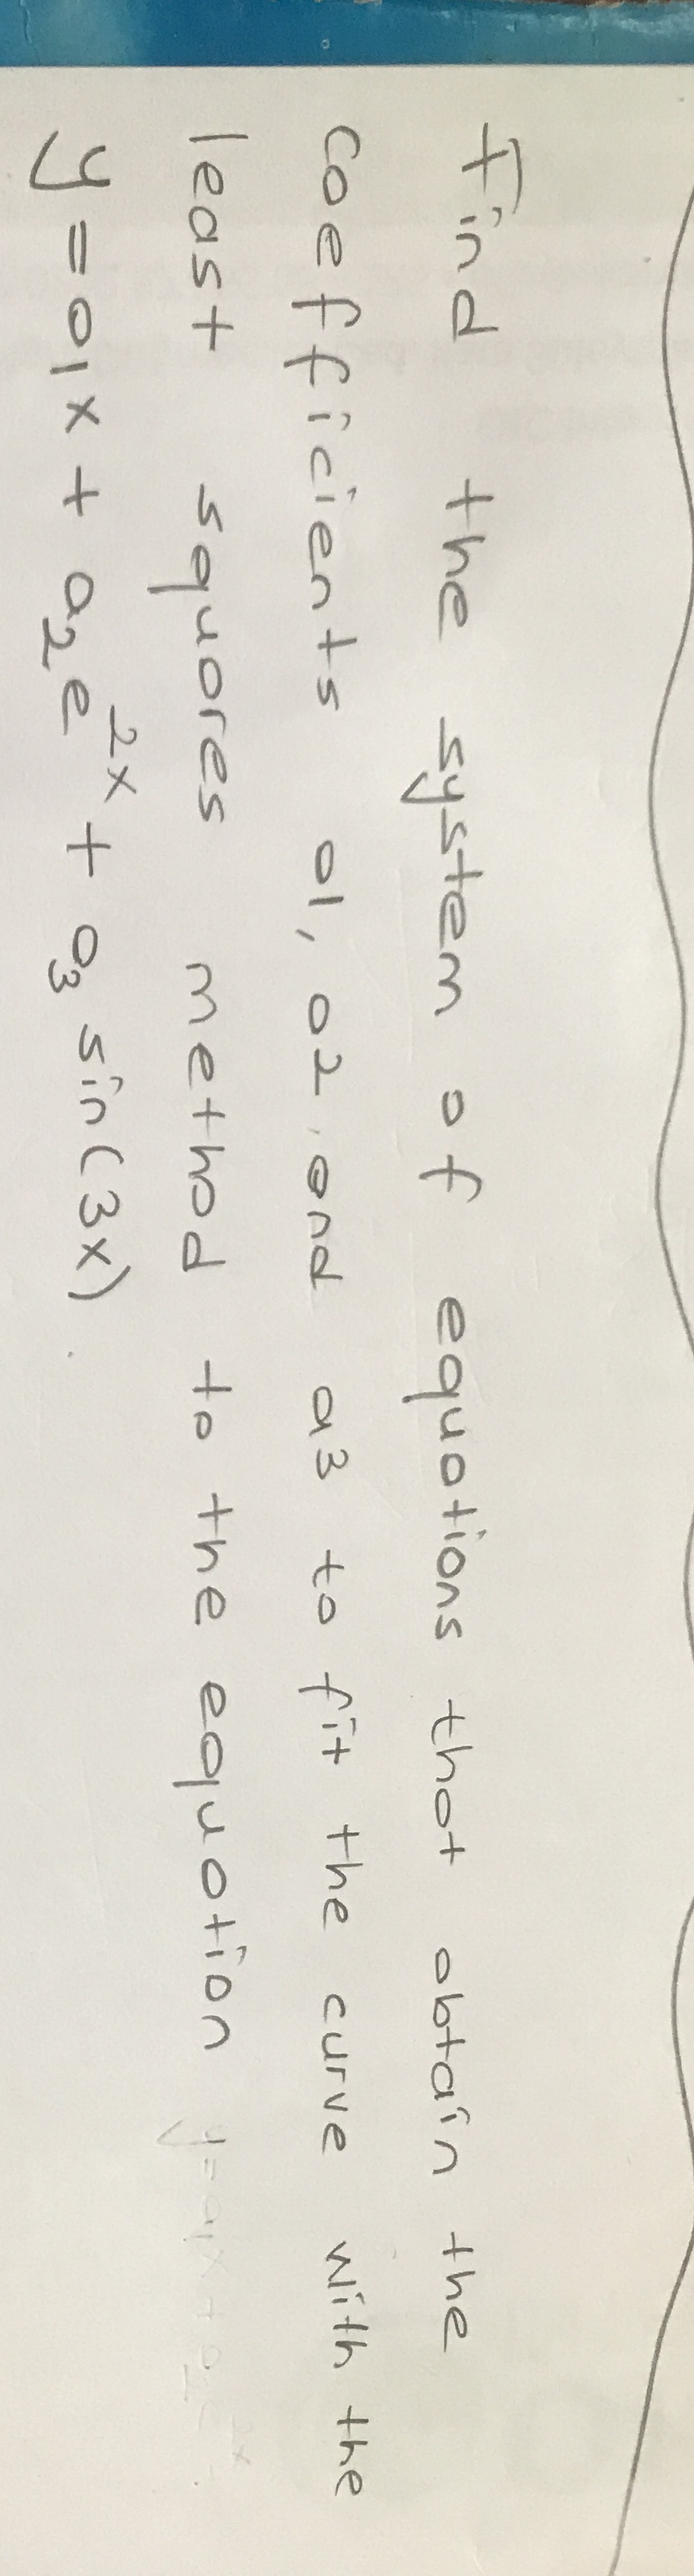 Find the system of equations that obtain the
coefficients a1, a2 and a3 to fit the curve with the
least squares method to the equation
y = a1x + a2e^2x + a3 sin(3x).